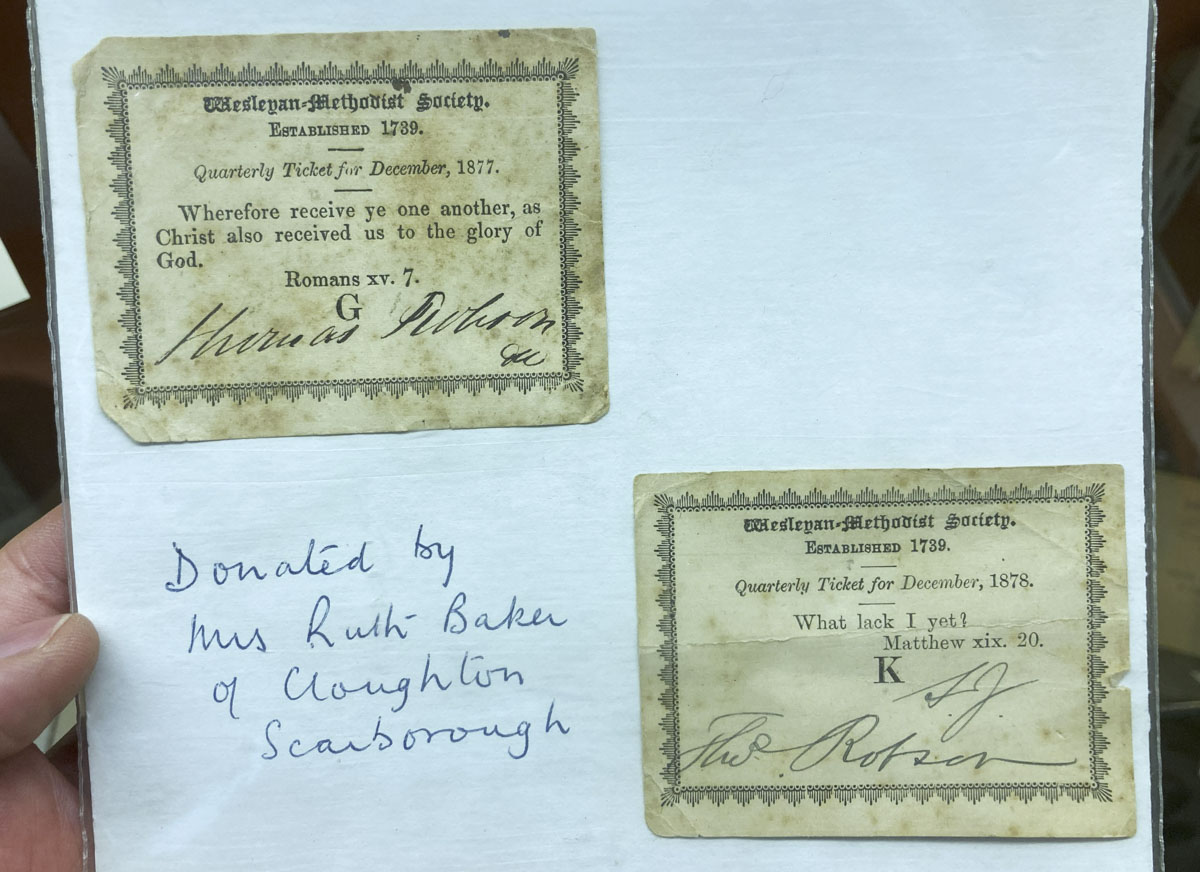 Wesleyan-Methodist Society.
ESTABLISHED 1739.
Quarterly Ticket for December, 1877.
Wherefore receive ye one another, as
Christ also received us to the glory of
God.
Romans xv. 7.
G
Thomas Robson
Donated by
Mrs Ruth Baker
of Cloughton
Scarborough
Wesleyan-Methodist Society.
ESTABLISHED 1739.
Quarterly Ticket for December, 1878.
What lack I yet?
Matthew xix. 20.
K
Thos Robson